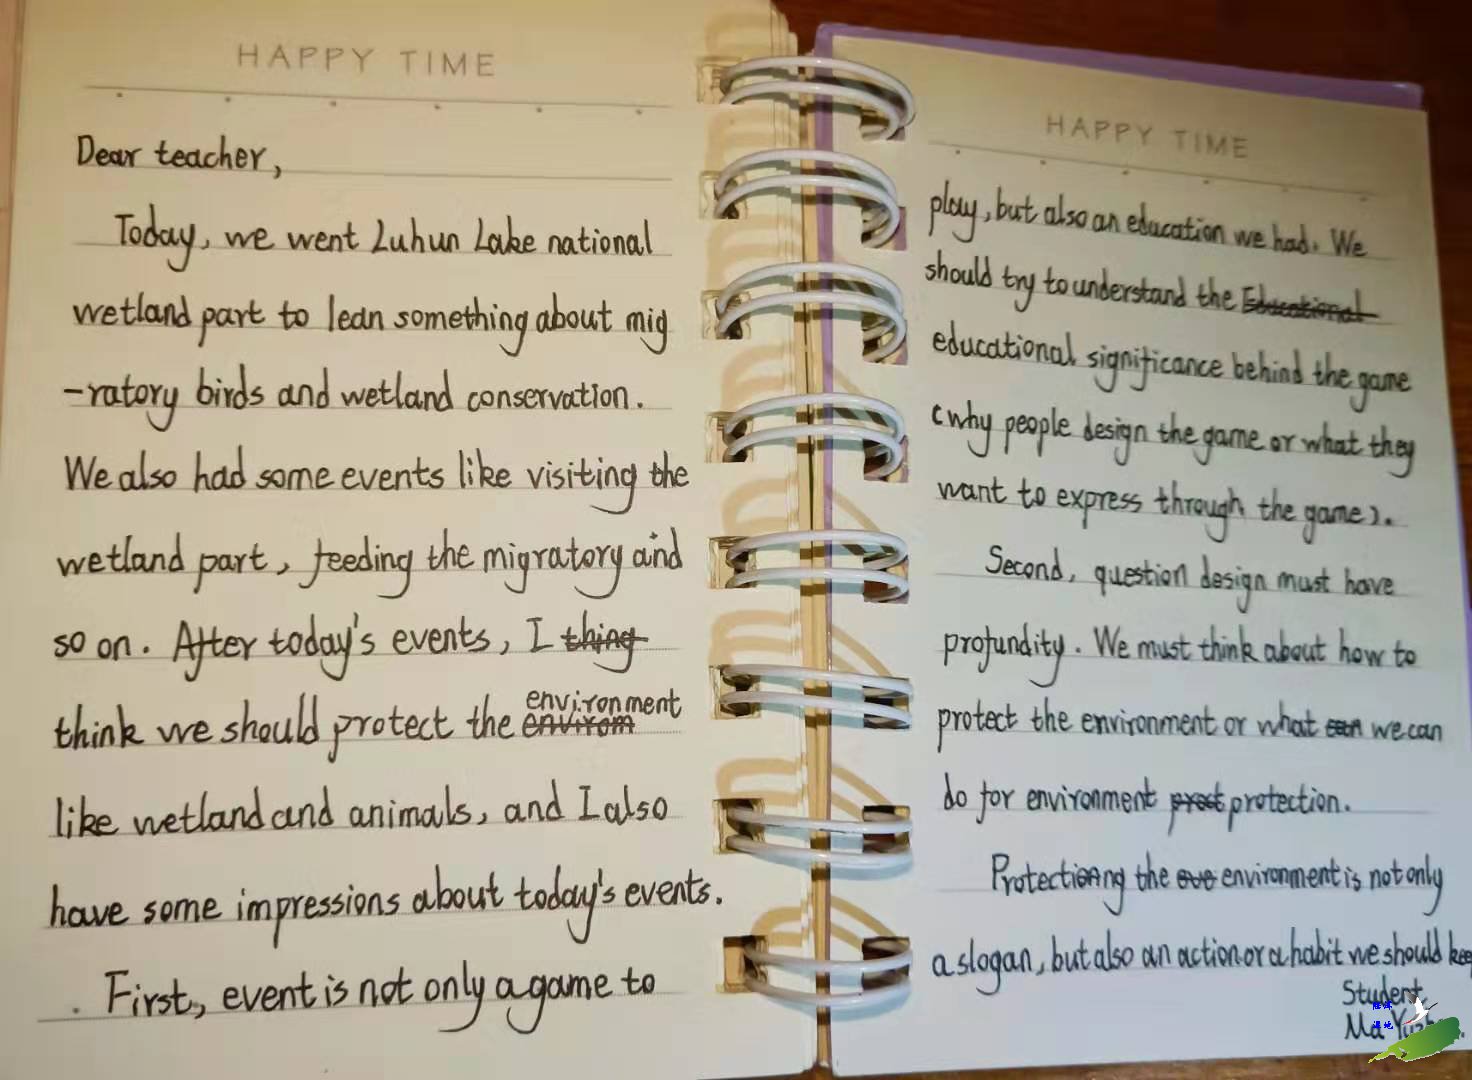 HAPPY TIME
Dear teacher,
Today, we went Luhun Lake national
wetland part to lean something about mig
-ratory birds and wetland conservation.
We also had some events like visiting the
wetland part, feeding the migratory and
so on. After today's events, I thing
think we should protect the environment
envirom
like wetland and animals, and I also
have some impressions about today's events.
. First, event is not only a game to
HAPPY TIME
play, but also an education we had. We
should try to understand the Educational
educational significance behind the game
(why people design the game or what they
want to express through the game).
Second, question design must have
profundity. We must think about how to
protect the environment or what we can
do for environment protection.
Protecting the environment is not only
a slogan, but also an action or a habit we should kee
Student
Ma
湿地